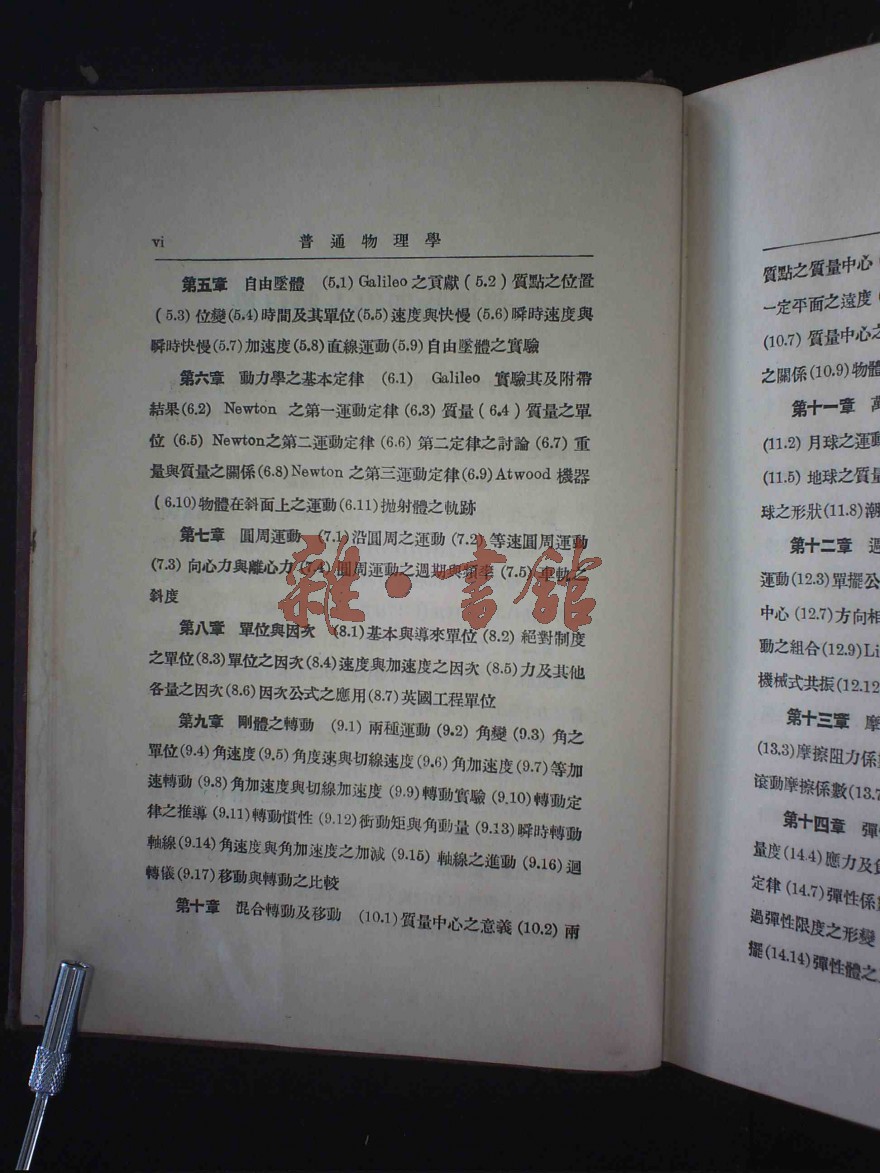 vi 普通物理學
第五章 自由墜體 (5.1) Galileo 之貢獻 (5.2) 質點之位置
(5.3) 位變(5.4)時間及其單位(5.5)速度與快慢 (5.6)瞬時速度與
瞬時快慢(5.7)加速度(5.8)直線運動(5.9)自由墜體之實驗
第六章 動力學之基本定律 (6.1) Galileo 實驗其及附帶
結果(6.2) Newton 之第一運動定律(6.3) 質量(6.4) 質量之單
位 (6.5) Newton之第二運動定律 (6.6) 第二定律之討論 (6.7) 重
量與質量之關係(6.8)Newton 之第三運動定律(6.9)Atwood 機器
(6.10)物體在斜面上之運動(6.11)拋射體之軌跡
第七章 圓周運動 (7.1)沿圓周之運動 (7.2)等速圓周運動
(7.3) 向心力與離心力(7.4)圓周運動之週期與頻率 (7.5)車軌之
斜度
第八章 單位與因次 (8.1)基本與導來單位 (8.2) 絕對制度
之單位(8.3)單位之因次(8.4)速度與加速度之因次 (8.5)力及其他
各量之因次(8.6)因次公式之應用(8.7)英國工程單位
第九章 剛體之轉動 (9.1) 兩種運動 (9.2) 角變 (9.3) 角之
單位(9.4)角速度(9.5)角度速與切線速度(9.6)角加速度(9.7)等加
速轉動 (9.8)角加速度與切線加速度 (9.9)轉動實驗 (9.10)轉動定
律之推導 (9.11)轉動慣性 (9.12)衝動矩與角動量 (9.13)瞬時轉動
軸線(9.14)角速度與角加速度之加減 (9.15) 軸線之進動 (9.16)迴
轉儀(9.17)移動與轉動之比較
第十章 混合轉動及移動 (10.1)質量中心之意義(10.2) 兩
雜·書館
質點之質量中心
一定平面之遠度
(10.7) 質量中心之
之關係(10.9)物體
第十一章 萬
(11.2)月球之運動
(11.5)地球之質量
球之形狀(11.8)潮
第十二章 週
運動(12.3)單擺公
中心 (12.7)方向相
動之組合(12.9)Li
機械式共振(12.12
第十三章 摩
(13.3)摩擦阻力係數
滾動摩擦係數(13.7
第十四章 彈
量度(14.4)應力及
定律 (14.7)彈性係數
過彈性限度之形變
擺(14.14)彈性體之